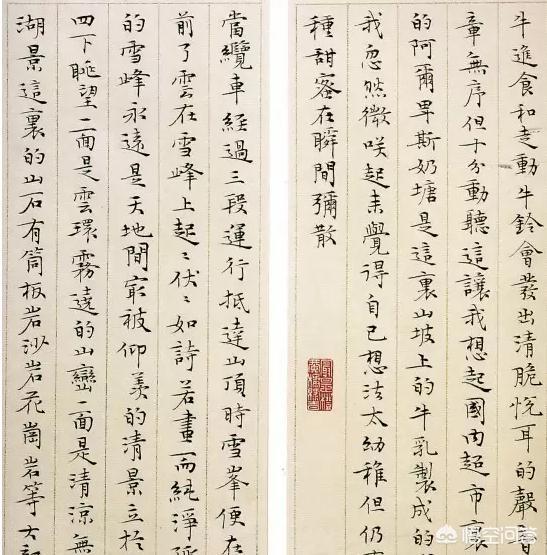 牛進食和走動牛鈴會發出清脆悅耳的聲音
章無序但十分動聽這讓我想起國內超市裏
的阿爾卑斯奶塘是這裏山坡上的牛乳製成的
我忽然微咲起来覺得自己想法太幼稚但仍
種甜密在瞬間彌散
當纜車經過三段運行抵達山頂時雪峯便在
前了雲在雪峰上起〻伏〻如詩若畫而純淨
的雪峰永遠是天地間最被仰羨的清景立於
四下眺望一面是雲環霧遶的山巒一面是清涼無
湖景這裏的山石有筒板岩沙岩花崗岩等
悟空问答